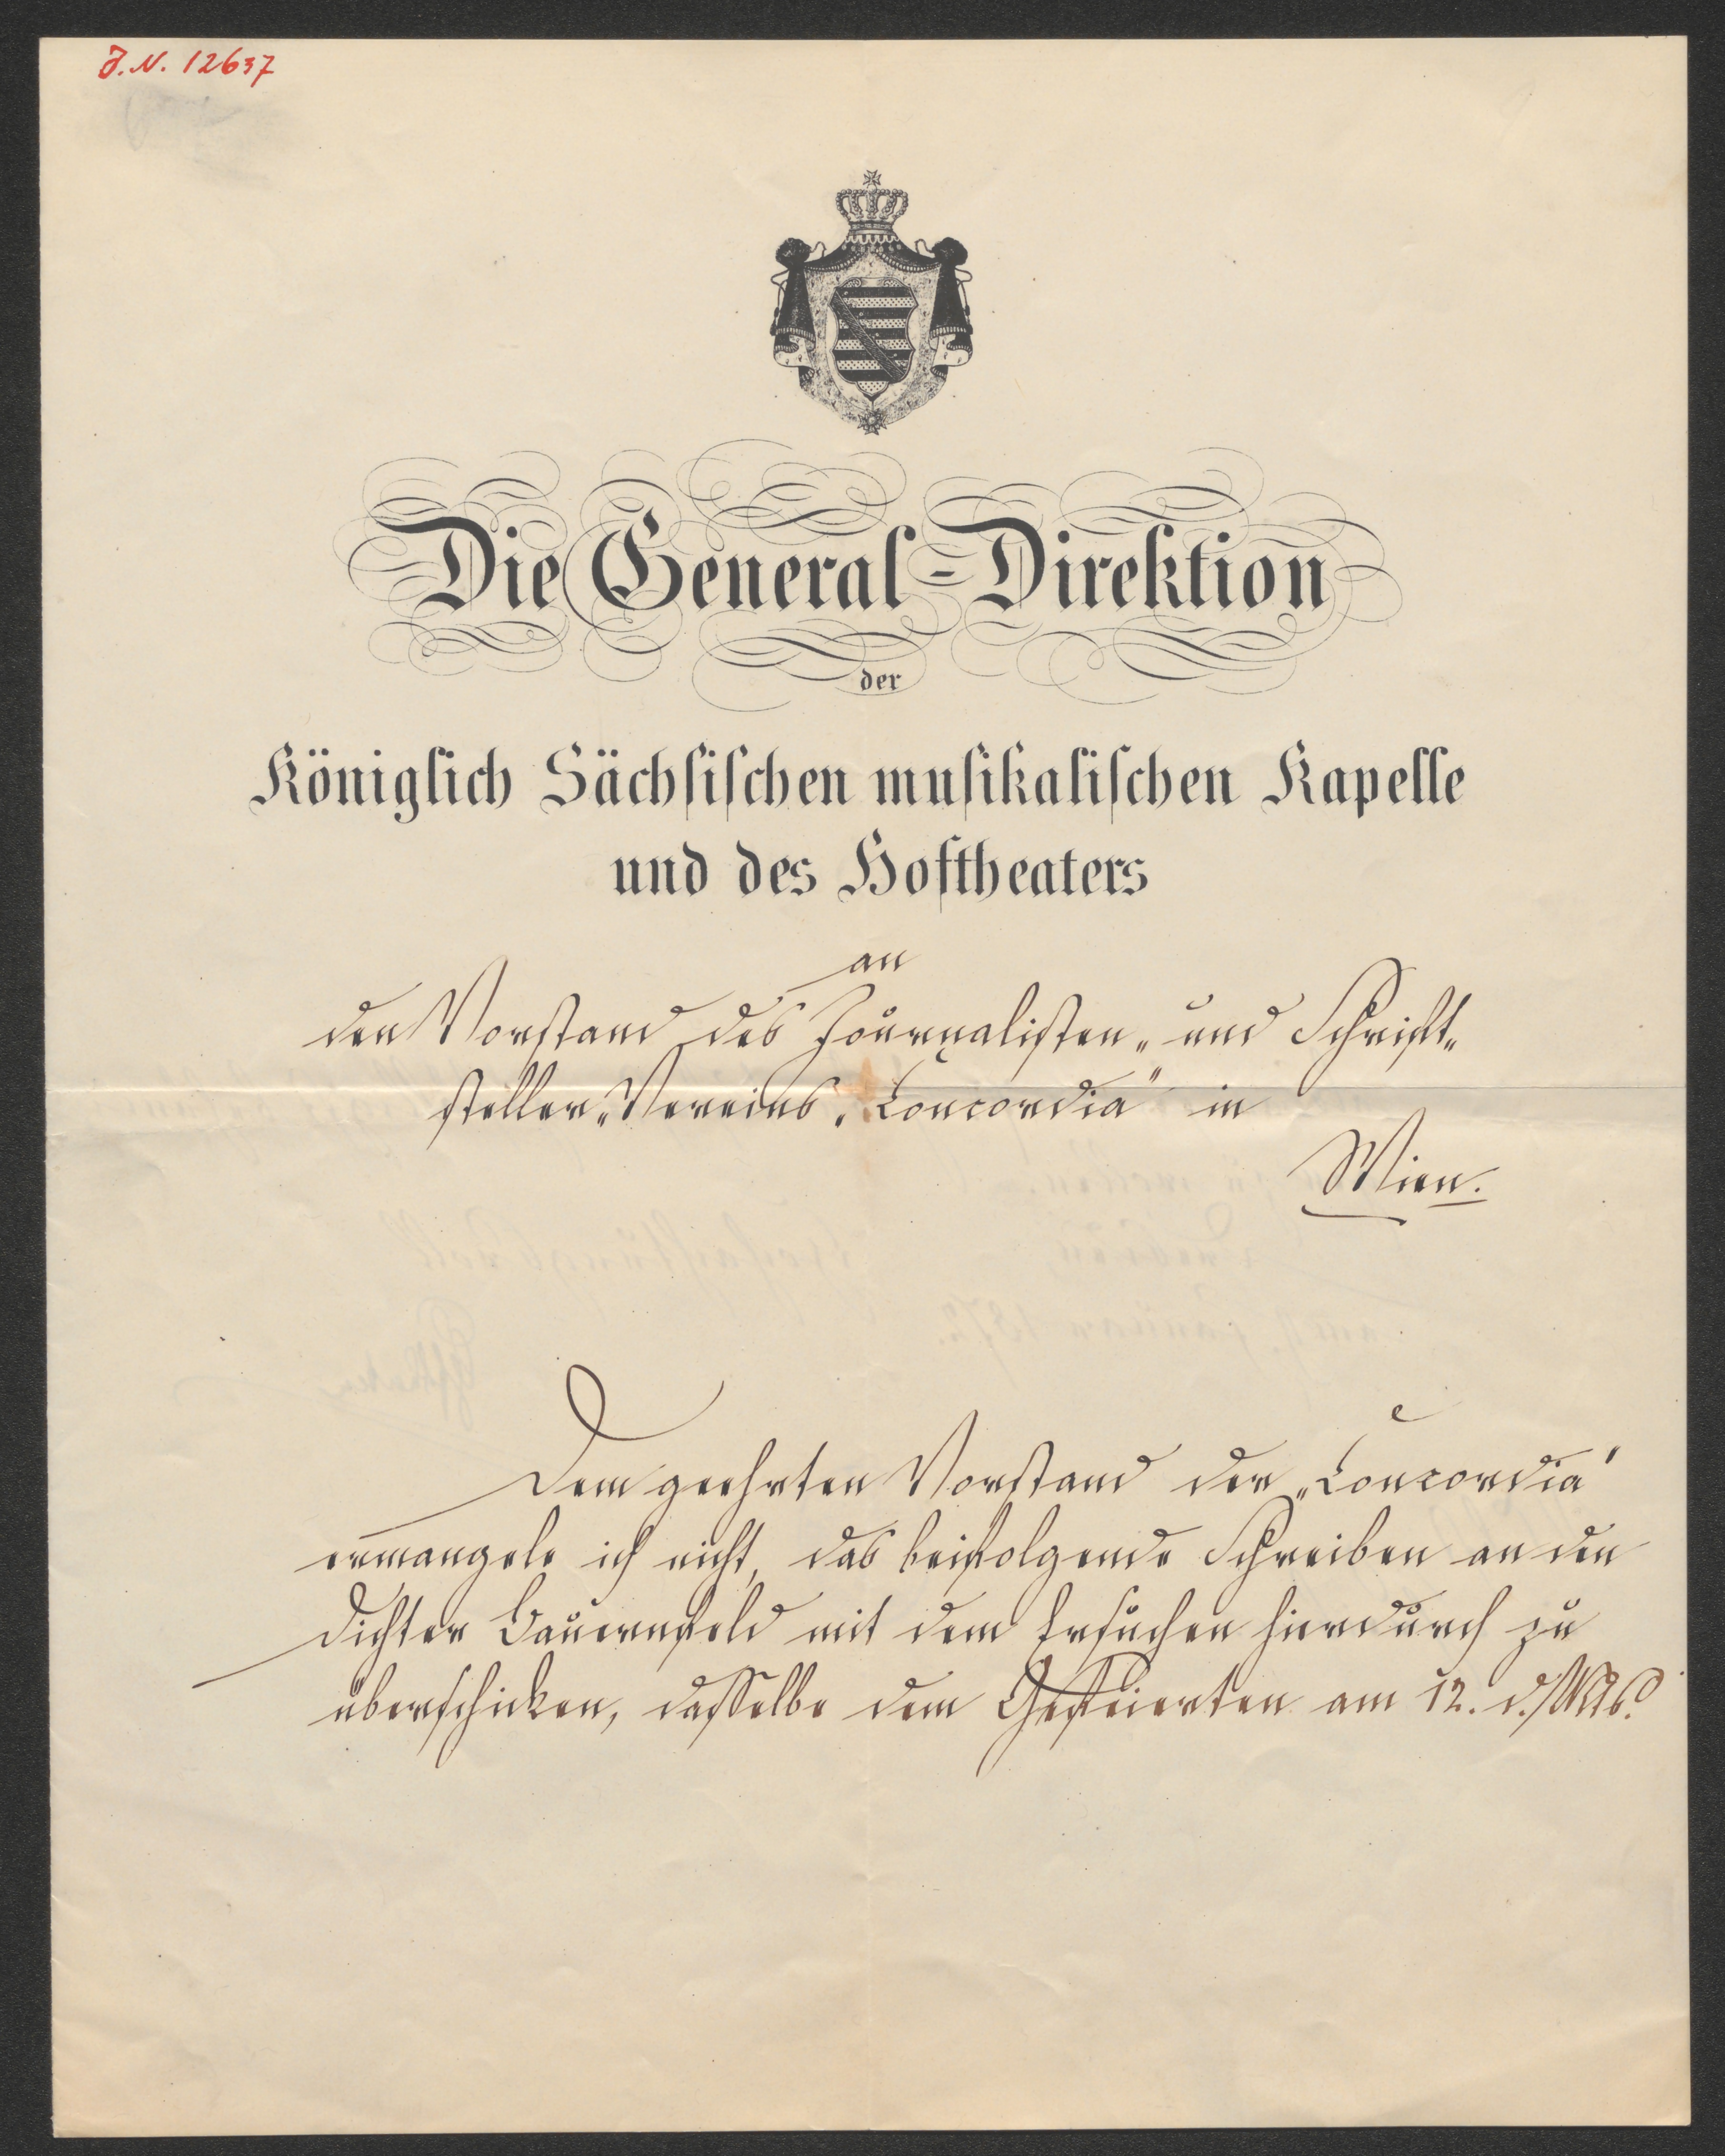 J.N. 12637
Die General-Direktion
der
Königlich Sächsischen musikalischen Kapelle
und des Hoftheaters
an
den Vorstand des Journalisten- und Schrift-
steller-Vereins „Concordia" in
Wien.
Dem geehrten Vorstand der „Concordia"
ermangele ich nicht, das beifolgende Schreiben an den
Dichter Bauernfeld mit dem Ersuchen hierdurch zu
überschicken, dasselbe dem Gefeierten am 12. d. Mts.